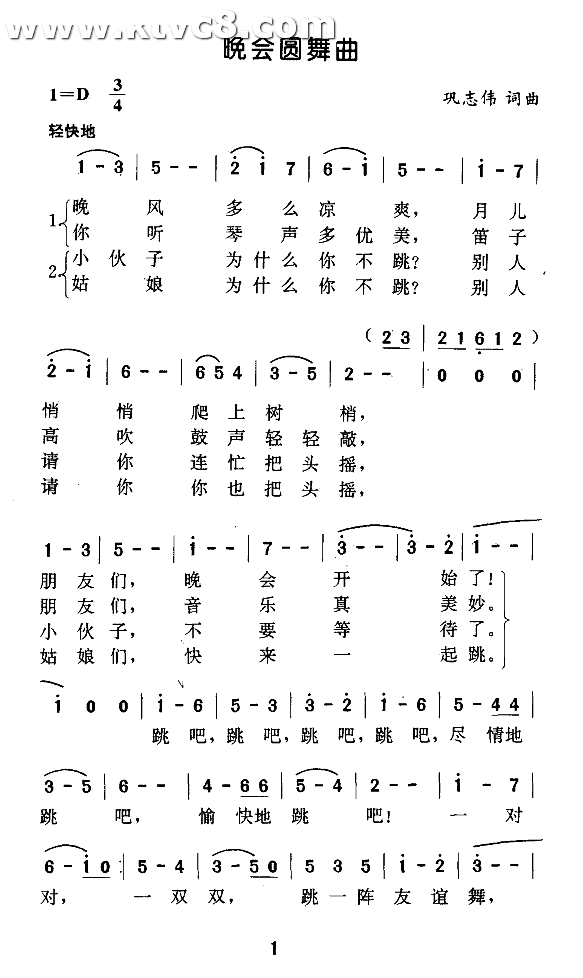 www.ktvc8.com
晚会圆舞曲
1=D 3/4
巩志伟 词曲
轻快地
1 - 3 | 5 - - | 2 1 7 | 6 - 1 | 5 - - | 1 - 7 |
1. 晚 风 多 么 凉 爽， 月 儿
你 听 琴 声 多 优 美， 笛 子
2. 小 伙 子 为 什 么 你 不 跳？ 别 人
姑 娘 为 什 么 你 不 跳？ 别 人
( 2 3 | 2 1 6 1 2 )
2 - 1 | 6 - - | 6 5 4 | 3 - 5 | 2 - - | 0 0 0 |
悄 悄 爬 上 树 梢，
高 吹 鼓 声 轻 轻 敲，
请 你 连 忙 把 头 摇，
请 你 你 也 把 头 摇，
1 - 3 | 5 - - | 1 - - | 7 - - | 3 - - | 3 - 2 | 1 - - |
朋 友 们， 晚 会 开 始 了！
朋 友 们， 音 乐 真 美 妙。
小 伙 子， 不 要 等 待 了。
姑 娘 们， 快 来 一 起 跳。
1 0 0 | 1 - 6 | 5 - 3 | 3 - 2 | 1 - 6 | 5 - 4 4 |
跳 吧， 跳 吧， 跳 吧， 跳 吧， 尽 情 地
3 - 5 | 6 - - | 4 - 6 6 | 5 - 4 | 2 - - | 1 - 7 |
跳 吧， 愉 快 地 跳 吧！ 一 对
6 - 1 0 | 5 - 4 | 3 - 5 0 | 5 3 5 | 1 - 2 | 3 - - |
对， 一 双 双， 跳 一 阵 友 谊 舞，
1